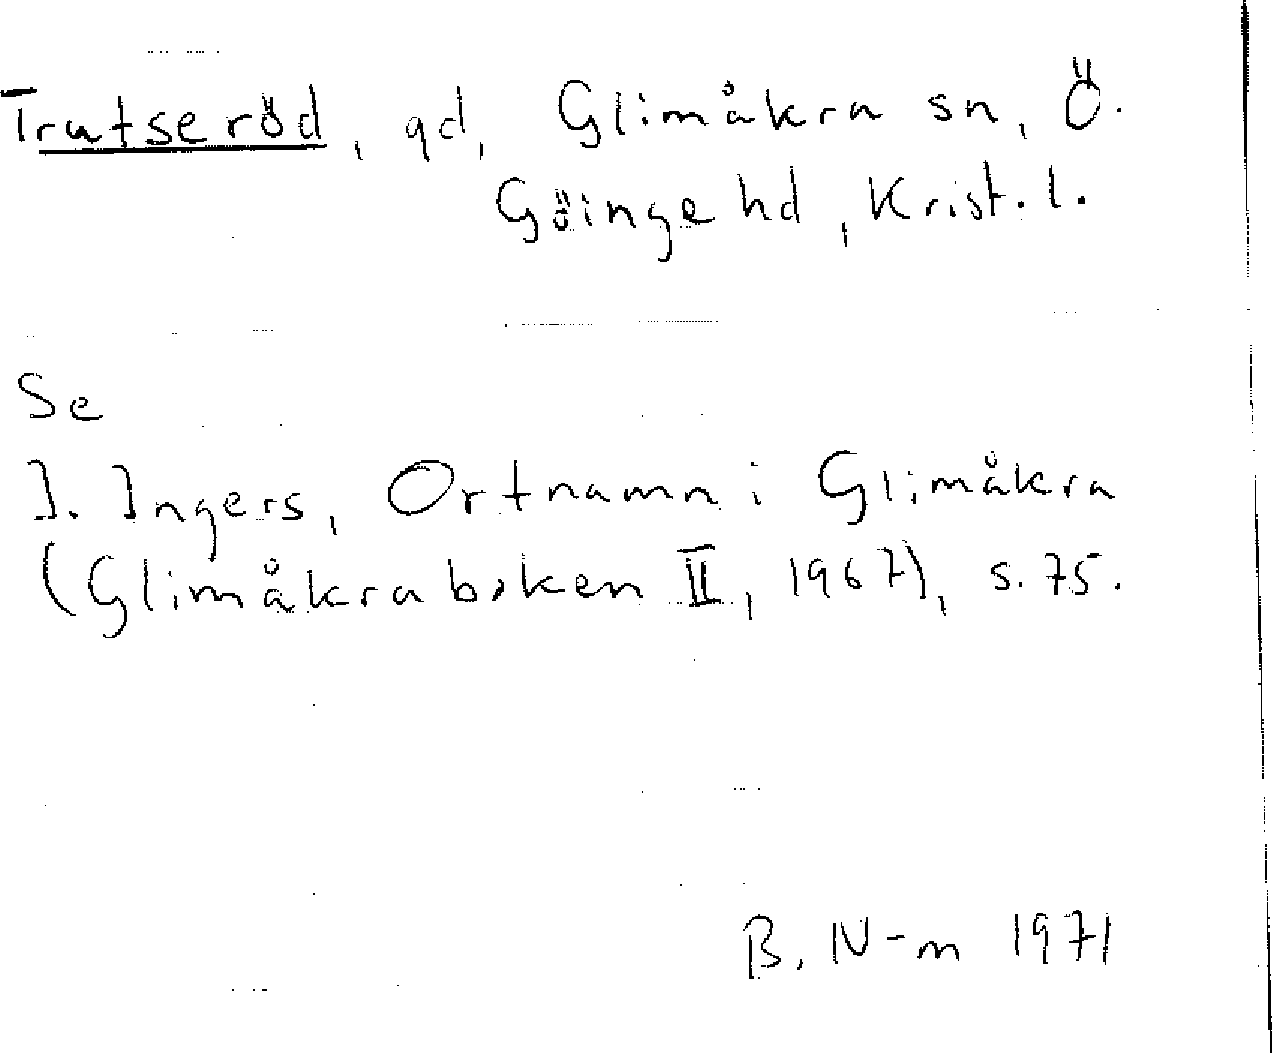 Tratseröd, gd, Glimåkra sn, Ö.
Göinge hd, Krist. l.
Se
I. Ingers, Ortnamn i Glimåkra
(Glimåkraboken II, 1967), s. 75.
B. N-m 1971